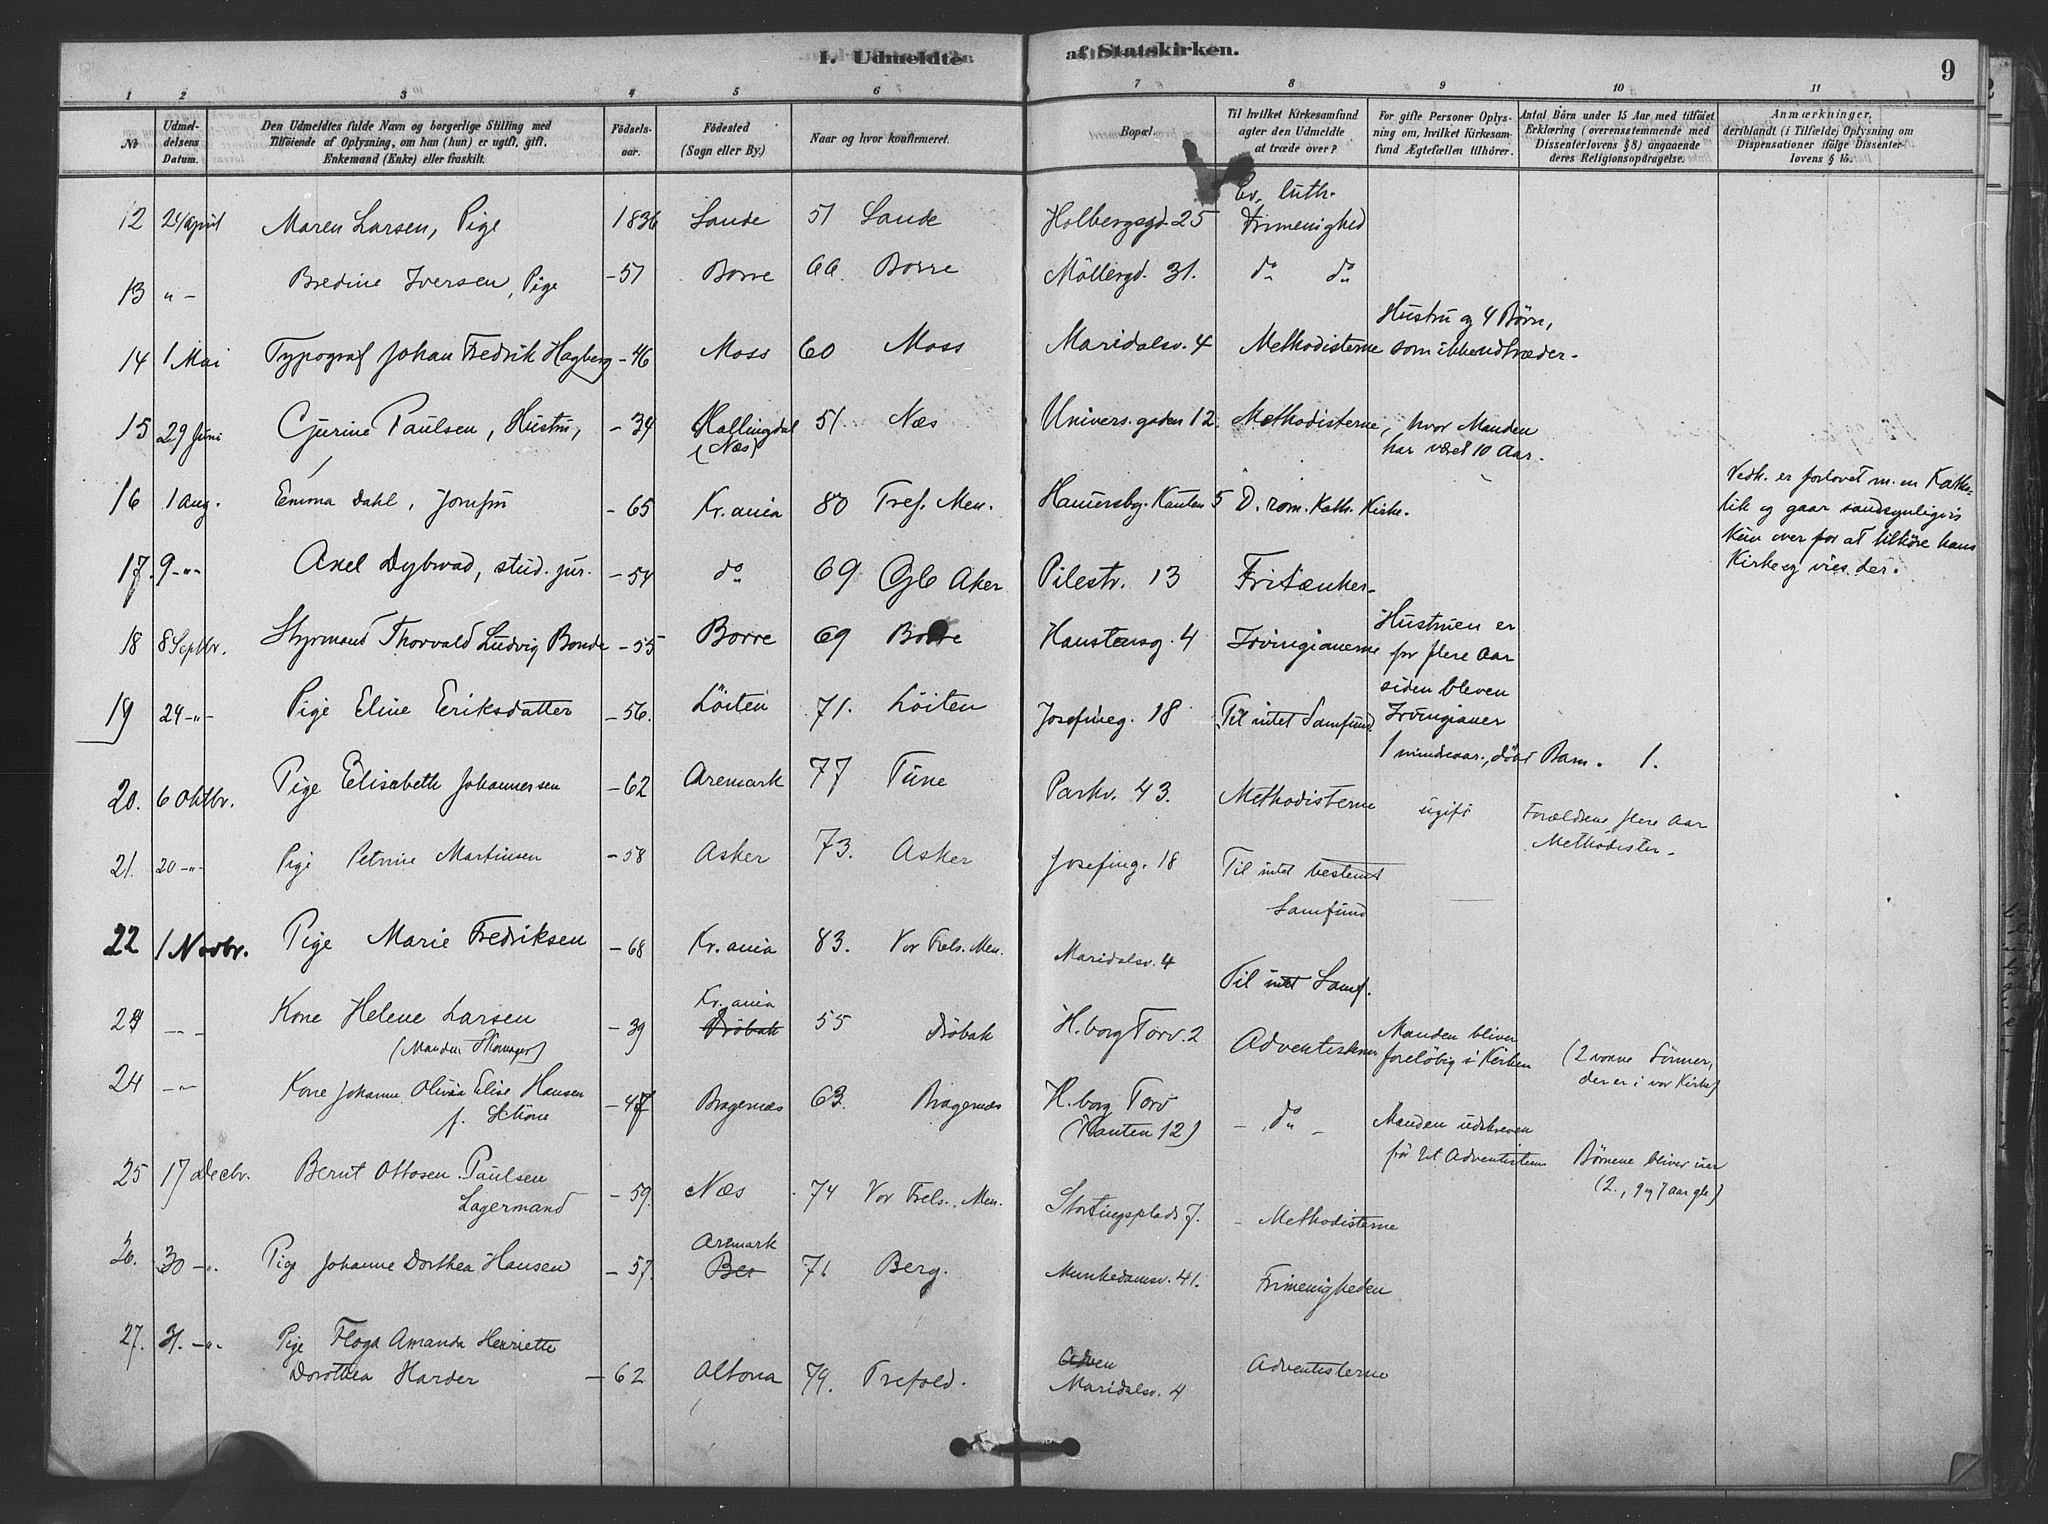 I. Udmeldte af Statskirken.
9
1 2 3 4 5 6 7 8 9 10 11
No
Udmeldelsens Datum.
Den Udmeldtes fulde Navn og borgerlige Stilling med
Tilföiende af Oplysning, om han (hun) er ugift, gift,
Enkemand (Enke) eller fraskilt.
Födselsaar.
Födested
(Sogn eller By.)
Naar og hvor konfirmeret.
Bopæl.
Til hvilket Kirkesamfund
agter den Udmeldte
at træde over?
For gifte Personer Oplysning om, hvilket Kirkesamfund Ægtefællen tilhörer.
Antal Börn under 15 Aar med tilföiet
Erklæring (overensstemmende med
Dissenterlovens § 8) angaaende
deres Religionsopdragelse.
Anmærkninger,
deriblandt (i Tilfælde) Oplysning om
Dispensationer ifölge Dissenterlovens § 15.
12 24 April Maren Larsen, Pige 1836 Sande 51 Sande Holbergsgd. 25 Ev. luth. Frimenighed
13 " - Bredine Iversen, Pige - 51 Borre 66. Borre Möllergd. 31. do do
14 1 Mai Typograf Johan Fredrik Hagberg - 46 Moss 60 Moss Maridalsv. 4 Methodisterne Hustru og 4 Börn, som ikke udtræder.
15 29 Juni Gjurine Paulsen, Hustru, - 34 Hallingdal (Næs) 51 Næs Univers. gaden 12. Methodisterne, hvor Manden har været 10 Aar.
16 1 Aug. Emma Dahl, Jomfru - 65 Kr.ania 80 Tref. Men. Hauersby. Kanten 5 D. rom. Kath. Kirke. Vedk. er forlovet m. en Katholik og gaar sandsynligvis kun over for at tilhöre hans Kirke og vies der.
17. 9 -"- Axel Dybwad, stud. jur. - 54 do 69 Gl. Aker Pilestr. 13 Fritænker
18 8 Septbr. Styrmand Thorvald Ludvig Bonde - 55 Borre 69 Borre Haustensg. 4 Irvingianerne Hustruen er for flere Aar siden bleven Irvingianer
19 24 -"- Pige Eline Eriksdatter - 56. Löiten 71. Löiten Josefineg. 18 Til intet Samfund. 1 mindreaar., Barn. 1.
20. 6 Oktbr. Pige Elisabeth Johannersen - 62 Aremark 77 Tune Parkv. 43. Methodisterne ugift Forældrene flere Aar Methodister
21. 20 -"- Pige Petrine Martinsen - 58 Asker 73. Asker Josefineg. 18 Til intet bestemt Samfund
22 1 Novbr. Pige Marie Fredriksen - 68 Kr.ania 83. Vor Frels. Men. Maridalsv. 4 Til intet Samf.
23 -"- Kone Helene Larsen (Manden Skomager) - 39 Kr.ania Dröbak 55 Dröbak H.borg Torv. 2 Adventisterne Manden bliver foreløbig i Kirken (2 voxne Sönner, der er i vor Kirke)
24 -"- Kone Johanne Olivia Elise Hansen f. Schöne - 47 Bragernæs 63. Bragernæs H.borg Torv (Kanten 12) - do - Manden udskreven för til Adventisterne Børnene bliver (2., 9 og 7 Aar gle)
25 17 Decbr. Bernt Ottosen Paulsen Lagermand - 59. Næs 74 Vor Frels. Men. Stortingsplads 7. - Methodisterne
26. 30 -"- Pige Johanne Dorthea Hansen - 57. Aremark Ber 71 Berg. Munkedamsv. 41. Frimenigheden
27. 31. -"- Pige Floga Amanda Henriette Dorothea Harder - 62 Altona 79. Trefold. Adven Maridalsv. 4 Adventisterne